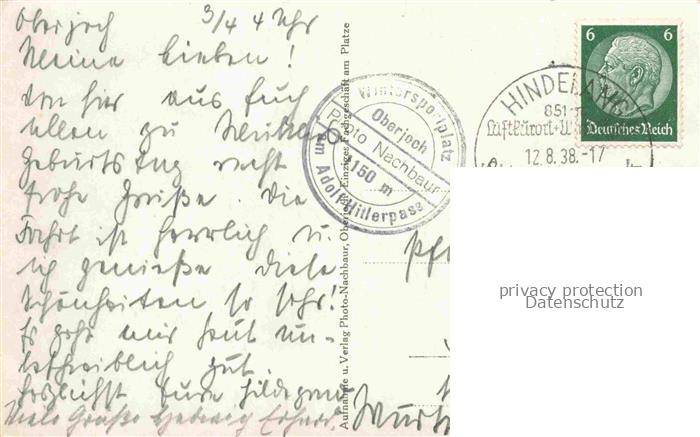 Oberjoch 3/4 4 Uhr
Meine Lieben!
Von hier aus Euch
allen zu Meikes
Geburtstag recht
frohe Grüße. Die
Fahrt ist herrlich u.
ich genieße diese
Schönheiten so sehr!
Es geht mir heut un-
beschreiblich gut.
Herzlichst Eure Hildegard
Viele Grüße Hedwig Erhard.
Aufnahme u. Verlag Photo-Nachbaur, Oberjoch Einziges Fachgeschäft am Platze
Wintersportplatz
Oberjoch
Photo Nachbaur
1150 m
am Adolf Hitlerpass
HINDELANG
851-
Luftkurort
12.8.38.-17
6 6
Deutsches Reich
privacy protection
Datenschutz